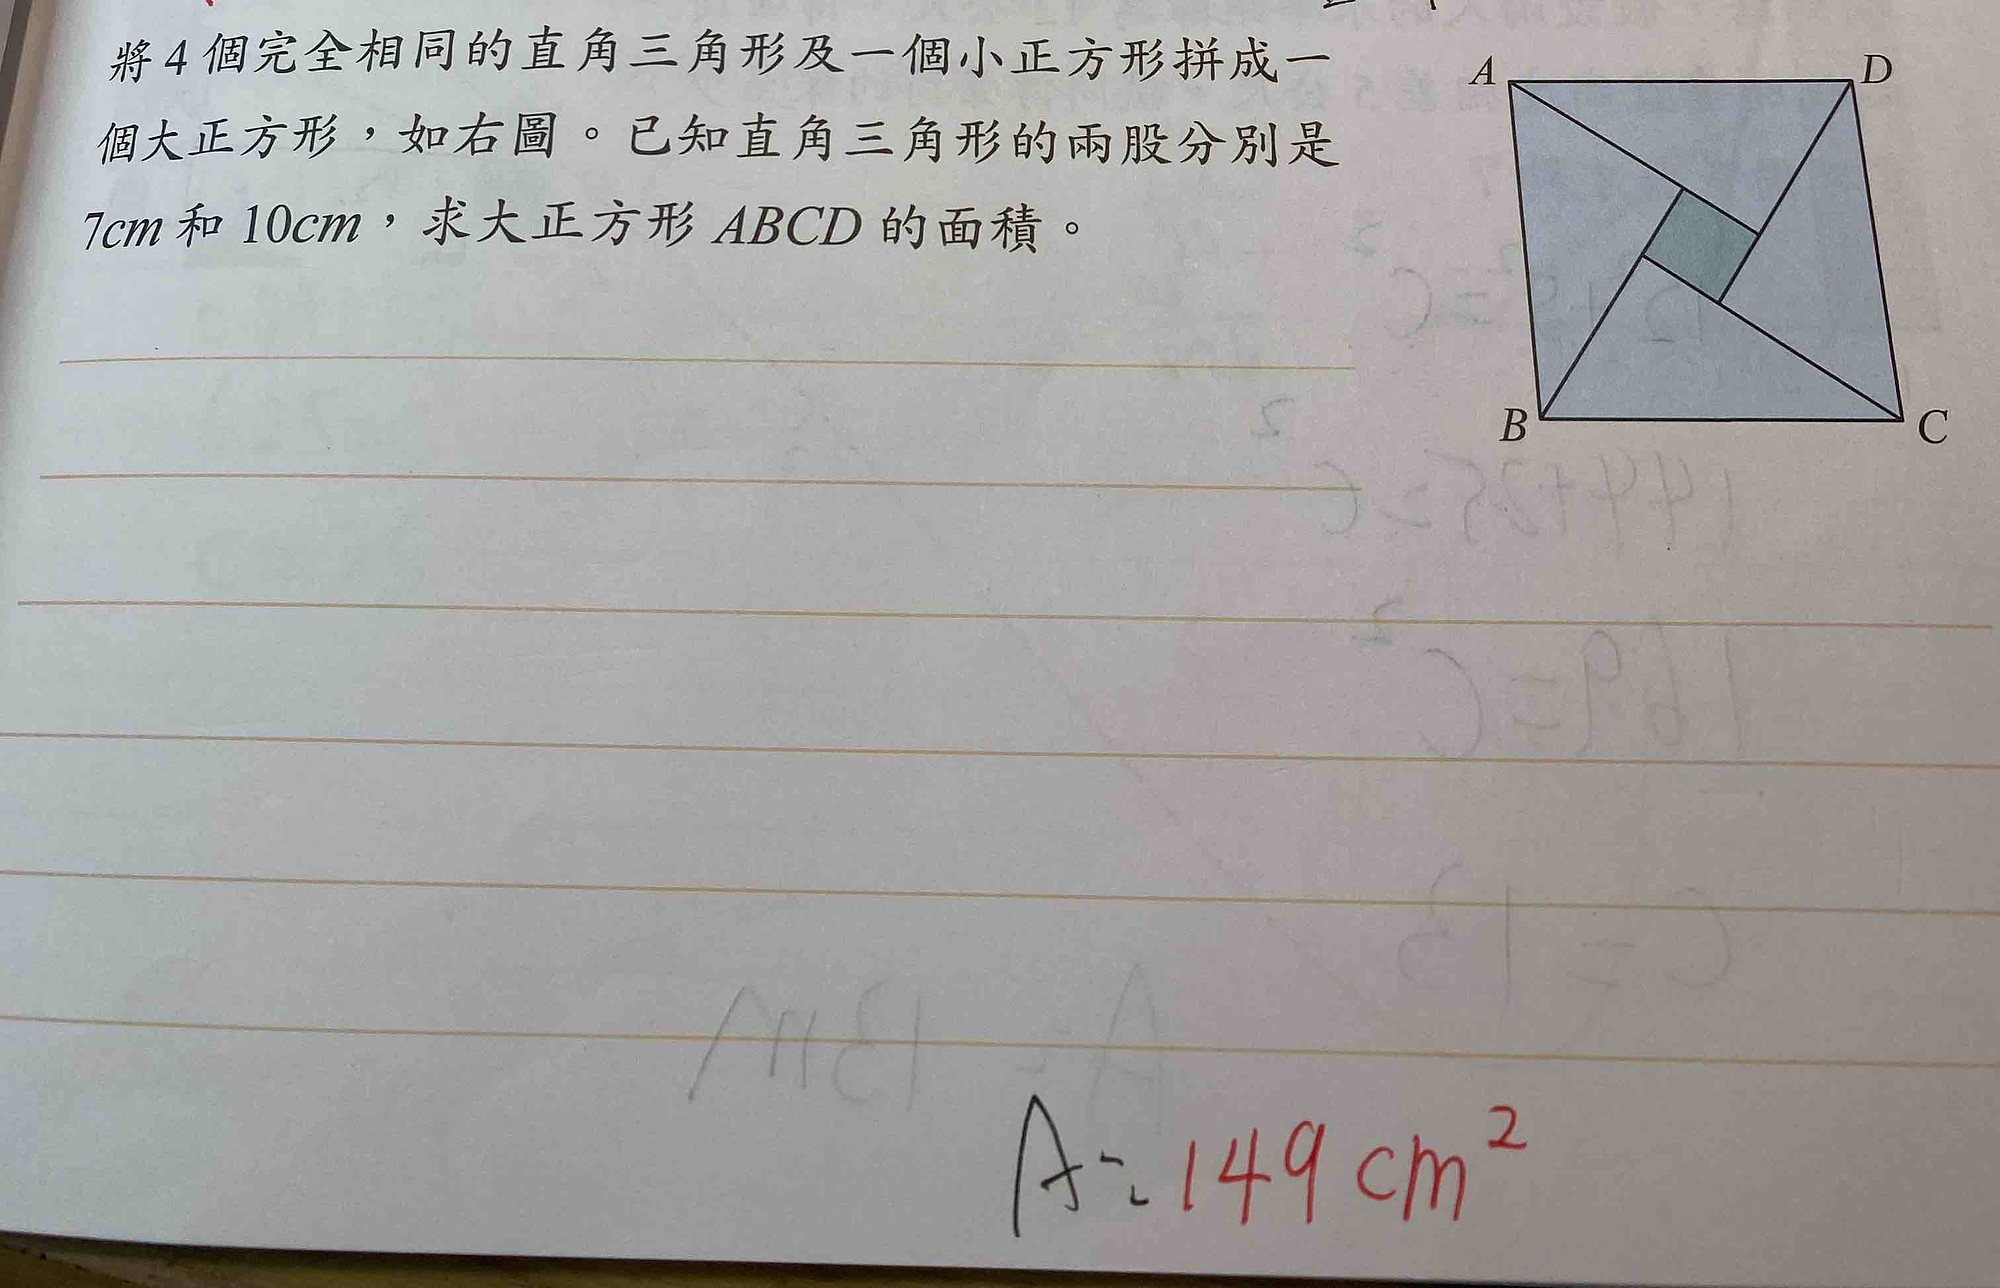 將4個完全相同的直角三角形及一個小正方形拼成一
個大正方形，如右圖。已知直角三角形的兩股分別是
7cm 和 10cm，求大正方形 ABCD 的面積。
A
D
B
C
A：149 cm²